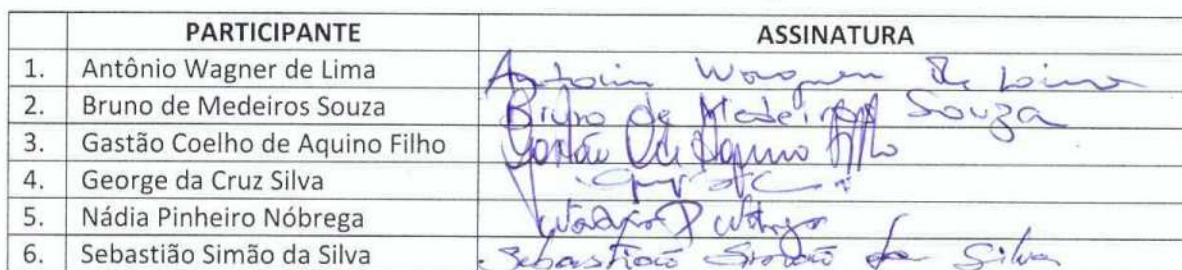 PARTICIPANTE ASSINATURA
1. Antônio Wagner de Lima Antonio Wagner de Lima
2. Bruno de Medeiros Souza Bruno de Medeiros Souza
3. Gastão Coelho de Aquino Filho Gastão C de Aquino Filho
4. George da Cruz Silva
5. Nádia Pinheiro Nóbrega Nadia P Nóbrega
6. Sebastião Simão da Silva Sebastião Simão da Silva